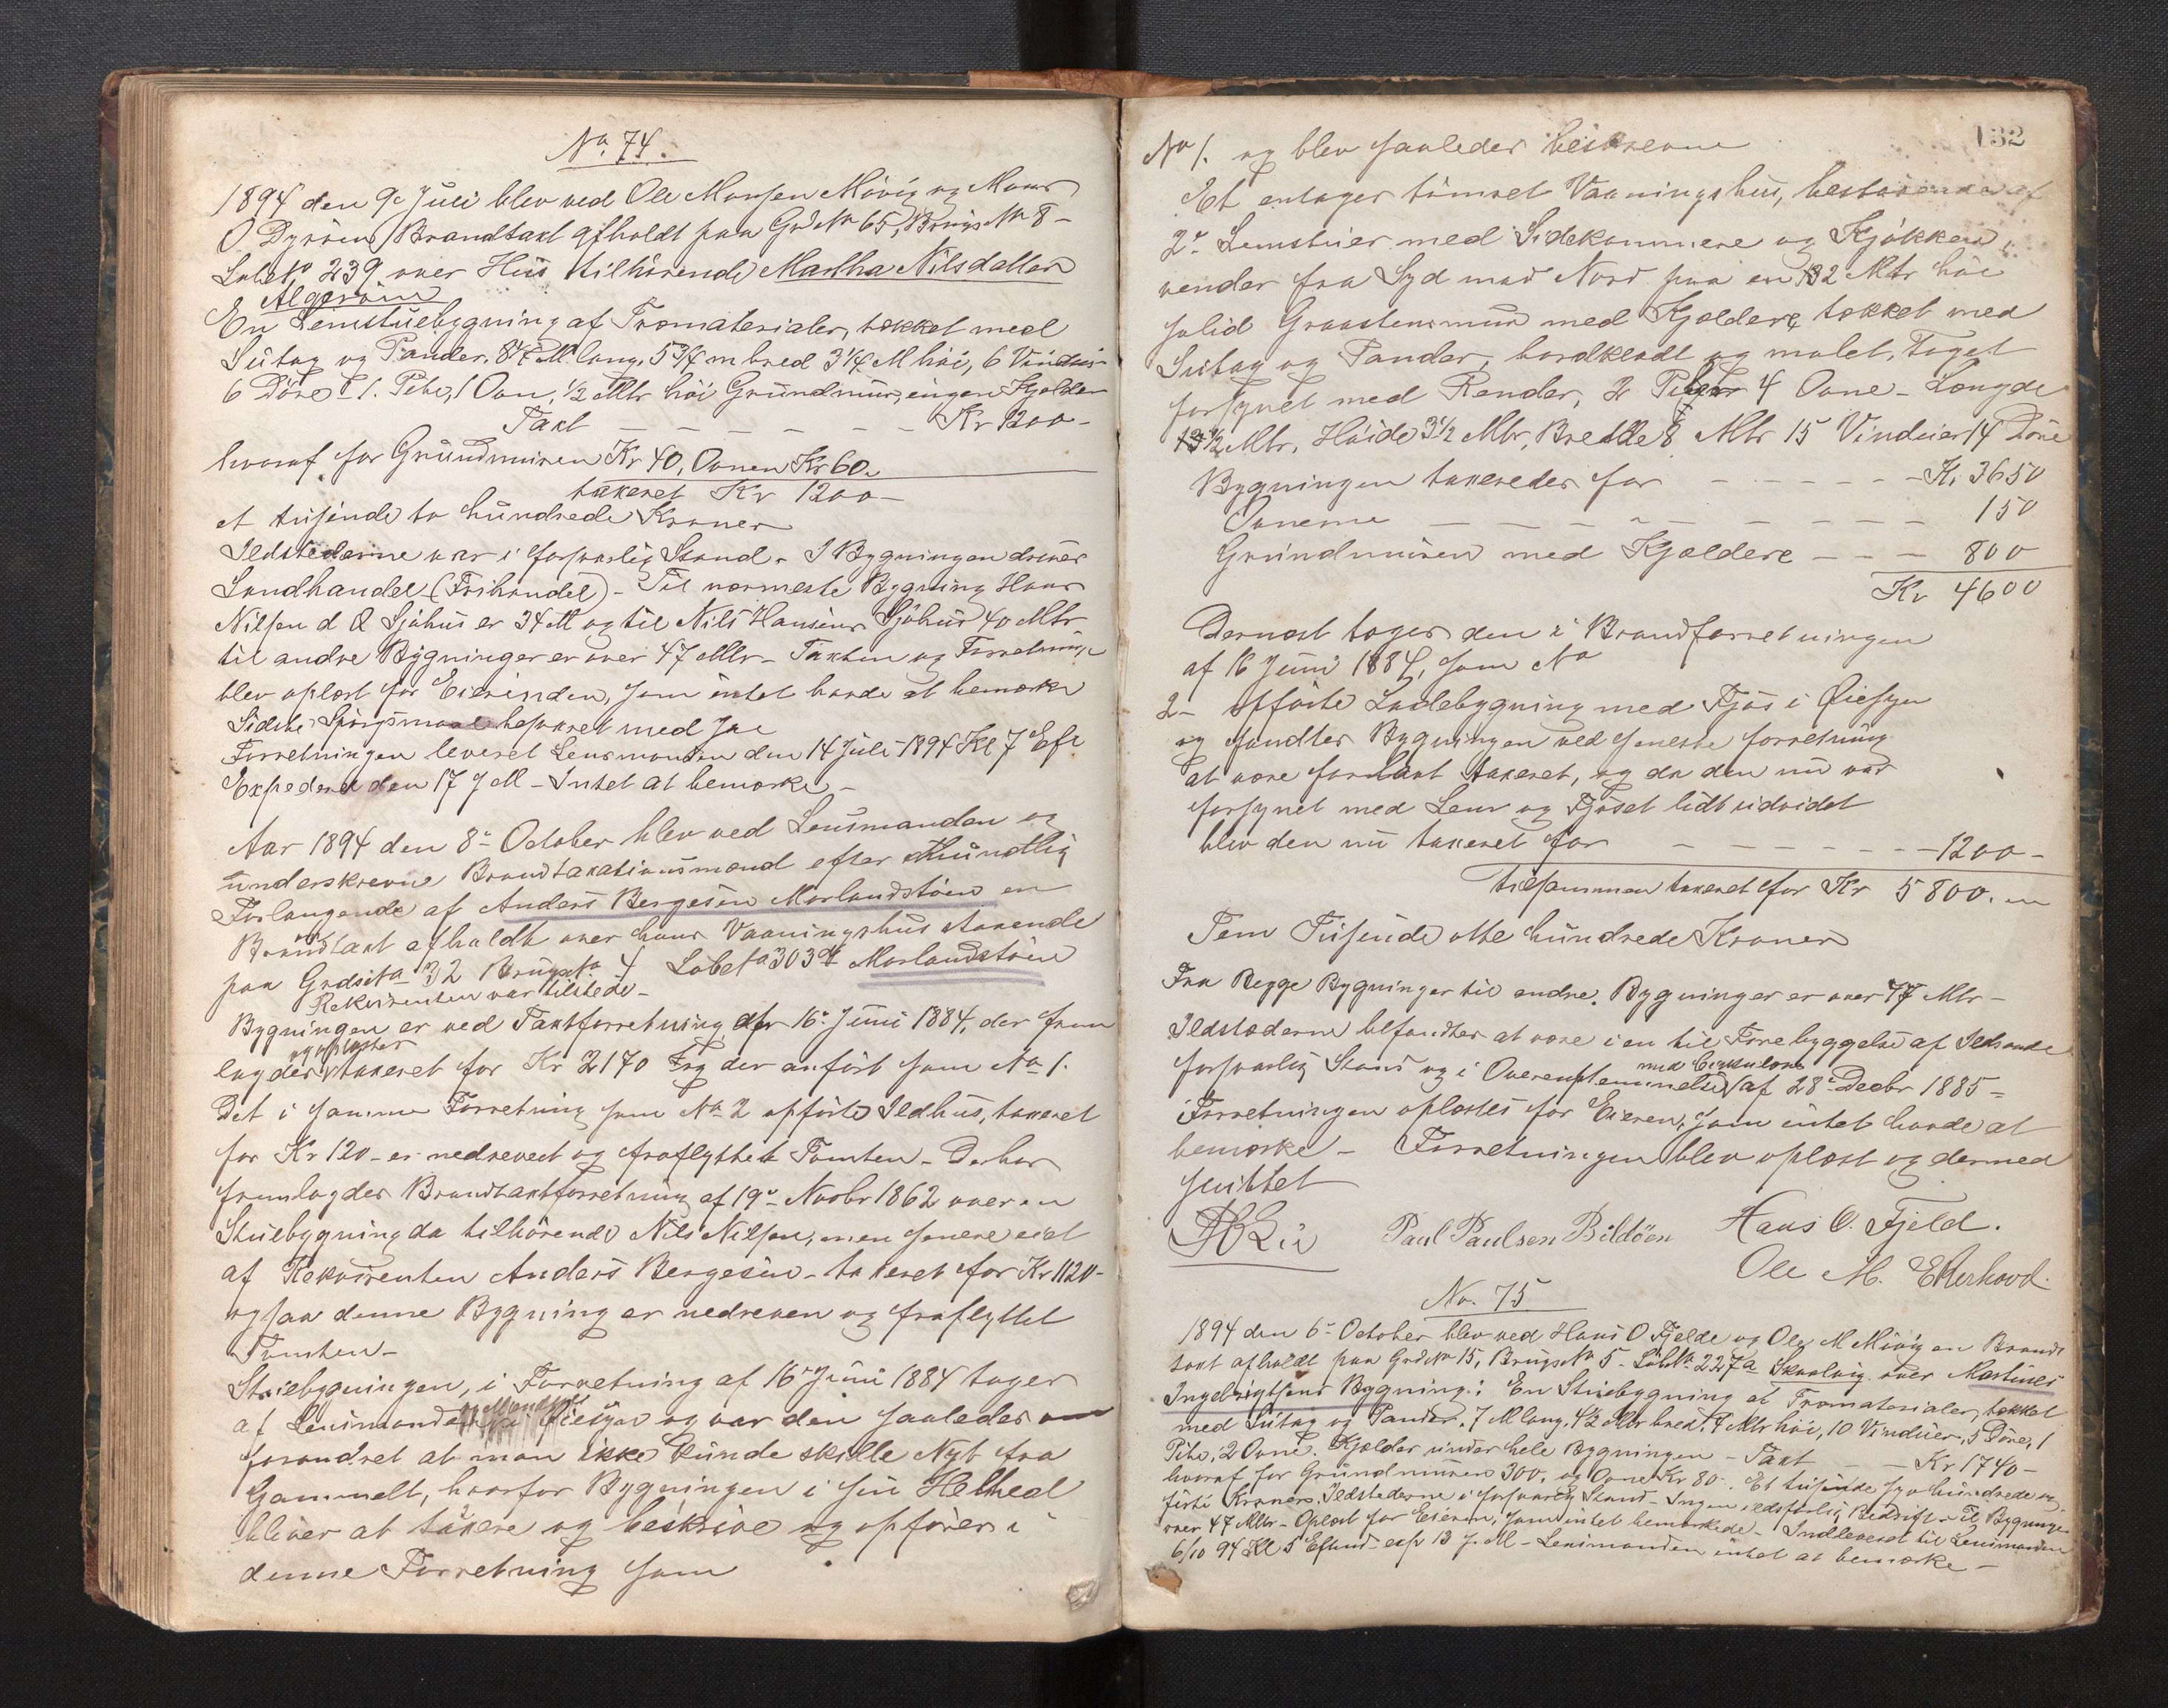 No. 74.
1894 den 9de Juli blev ved Ole Monsen Mövig og Mons
O Dyröen Brandtaxt afholdt paa Gd No 65, Brugs No 8 -
Lobe No 239 over Hus tilhörende Martha Nilsdatter
Algeröin
En Lemstuebygning af Træmaterialer, tækket med
Sutag og Pander, 8 1/4 M lang, 5 3/4 m bred 3 1/4 M höi, 6 Vinduer
6 Döre - 1. Pibe, 1 Ovn, 1/2 Mtr höi Grundmur, ingen Kjelder
Taxt - - - - - - Kr 1200 -
hvoraf for Grundmuren Kr 40, Ovnen Kr 60.
taxeret Kr 1200 -
et tusinde to hundrede Kroner
Ildstederne var i forsvarlig Stand. I Bygningen drives
Landhandel (Frihandel) - Til nærmeste Bygning Hans
Nilsen d Q Sjöhus er 34 M og til Nils Hansens Sjöhus 40 Mtr
til andre Bygninger er over 47 Mtr - Taxten og Forretningen
blev oplæst for Eierinden, som intet havde at bemærke
Sidste Spörgsmaal besvaret med Ja
Forretningen leveret Lensmanden den 14 Juli 1894 Kl 7 Eft
Expederet den 17 s M - Intet at bemærke -
Aar 1894 den 8de October blev ved Lensmanden og
underskrevne Brandtaxationsmænd efter Mundtlig
Forlangende af Anders Bergesen Morlandstöen en
Brandtaxt afholdt over hans Vaaningshus staaende
paa Grdsno 32 Brugsno 4 Lobeno 303 Morlandstöen
Rekvirenten var tilstede -
Bygningen er ved Taxtforretning af 16de Juni 1884, der frem
og oplæstes
lagdes taxeret for Kr 2170 og der anfört som No 1.
Det i samme Forretning som No 2 opförte Ildhus, taxeret
for Kr 120 - er nedrevet og fraflyttet Tomten - Derhos
fremlagdes Brandtaxtforretning af 19de Novbr 1862 over en
Stuebygning da tilhörende Nils Nilsen, men senere eiet
af Rekvirenten Anders Bergesen - taxeret for Kr 1120 -
ogsaa denne Bygning er nedreven og fraflyttet
Tomten -
Stuebygningen, i Forretning af 16de Juni 1884 tages
af Lensmanden og Mænd i Öiesyn og var den saaledes
forandret at man ikke kunde skille Nyt fra
Gammelt, hvorfor Bygningen i sin Helhed
bliver at taxere og beskrive og opföres i
denne Forretning som
132
No 1. og blev saaledes beskreven
Et enlages tömret Vaaningshus, bestaaende af
2de Lemstuer med Sidekammere og Kjökken,
vender fra Syd mod Nord paa en 2 Mtr höi
solid Graastensmur med Kjeldere, tækket med
Sutag og Pander, bordklædt og malet, Taget
forsynet med Render, 2 Piber 4 Ovne - Længde
13 1/2 Mtr, Höide 3 1/2 Mtr, Bredde 8 Mtr 15 Vinduer 14 Döre
Bygningen taxeredes for - - - - - Kr 3650
Ovnene - - - - - - - - 150
Grundmuren med Kjeldere - - - 800
Kr 4600
Dernæst toges den i Brandforretningen
af 16 Juni 1884, som No
2 - opförte Ladebygning med Fjös i Öiesyn
og fandtes Bygningen ved seneste forretning
at være for lavt taxeret, og da den nu var
forsynet med Lem og Fjöset lidt udvidet
blev den nu taxeret for - - - - - - 1200 -
tilsammen taxeret for Kr 5800.
Fem Tusinde otte hundrede Kroner
Fra Begge Bygninger til andre Bygninger er over 47 Mtr -
Ildstederne befandtes at være i en til Forebyggelse af Ildsvaade
forsvarlig Stand og i Overenstemmelse med Cirkulære af 28de Decbr 1885 =
Forretningen oplæstes for Eieren, som intet havde at
bemærke - Forretningen blev oplæst og dermed
sluttet
Paul Paulsen Bildöen Hans O. Fjeld.
Ole M. Ekerhovd.
No. 75
1894 den 6de October blev ved Hans O Fjelde og Ole M Mövig en Brand
taxt afholdt paa Grdno 15, Brugs No 5 - Lobeno 227a Skaalvig over Martines
Ingebrigtsens Bygning: En Stuebygning af Træmaterialer, tækket
med Sutag og Pander. 7 M lang, 4 1/2 Mtr bred, 4 Mtr höi, 10 Vinduer, 5 Döre, 1
Pibe, 2 Ovne. Kjelder under hele Bygningen - Taxt - - Kr 1740 -
hvoraf for Grundmuren 300, og Ovne Kr 80. Et tusinde syv hundrede og
förti Kroner. Ildstederne i forsvarlig Stand - Ingen ildsfarlig Bedrift - Til Bygninger
over 47 Mtr - Oplæst for Eieren, som intet bemærkede - Indleveret til Lensmanden
6/10 94 Kl 5 Eftmd exp 13 s. M - Lensmanden intet at bemærke -